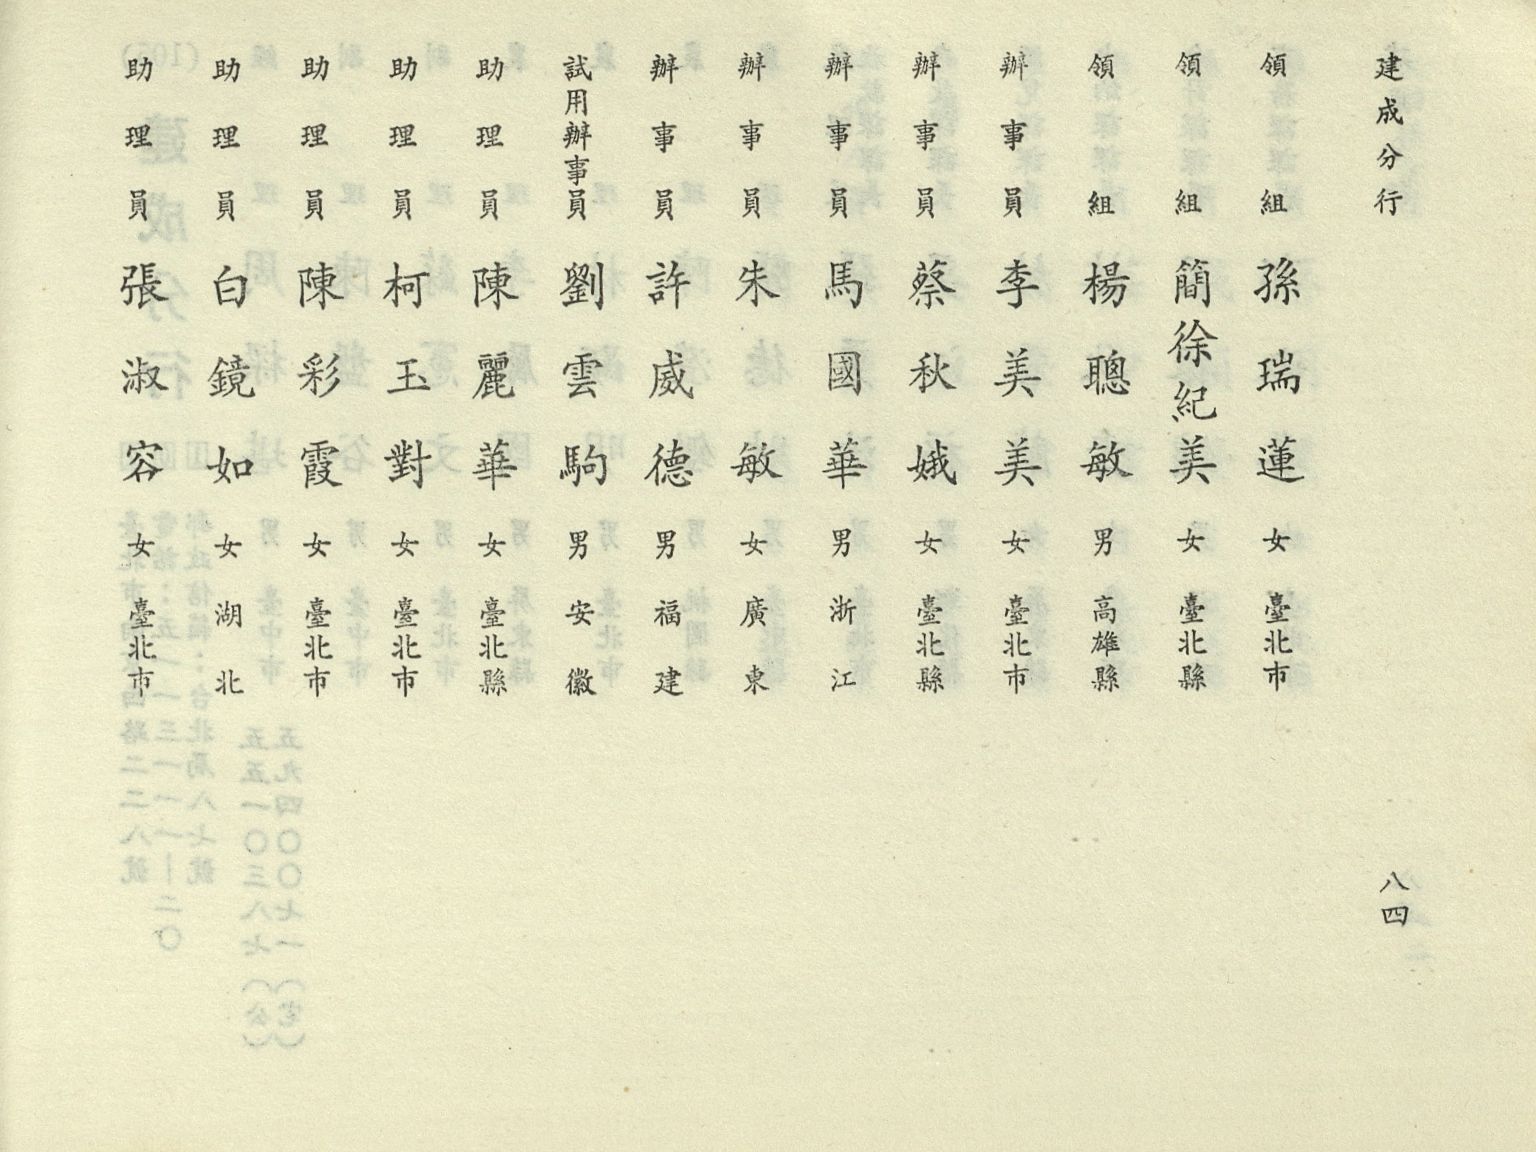 建成分行
八四
領組 孫瑞蓮 女 臺北市
領組 簡徐紀美 女 臺北縣
領組 楊聰敏 男 高雄縣
辦事員 李美美 女 臺北市
辦事員 蔡秋娥 女 臺北縣
辦事員 馬國華 男 浙江
辦事員 朱敏 女 廣東
辦事員 許威德 男 福建
試用辦事員 劉雲駒 男 安徽
助理員 陳麗華 女 臺北縣
助理員 柯玉對 女 臺北市
助理員 陳彩霞 女 臺北市
助理員 白鏡如 女 湖北
助理員 張淑容 女 臺北市